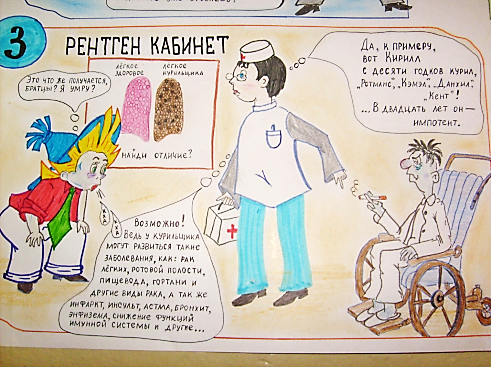 3
РЕНТГЕН КАБИНЕТ
ЛЁГКОЕ
ЗДОРОВОЕ
ЛЕГКОЕ
КУРИЛЬЩИКА
НАЙДИ ОТЛИЧИЕ?
Это что же получается,
братцы? Я умру?
Да, к примеру,
вот Кирилл
с десяти годков курил,
"Ротманс", "Кэмэл", "Данхил",
"Кент"!
...В двадцать лет он—
импотент.
КХА
КХА
Возможно!
Ведь у курильщика
могут развиться такие
заболевания, как: рак
лёгких, ротовой полости,
пищевода, гортани и
другие виды рака, а так же
инфаркт, инсульт, астма, бронхит,
энфизема, снижение функций
имунной системы и другие...